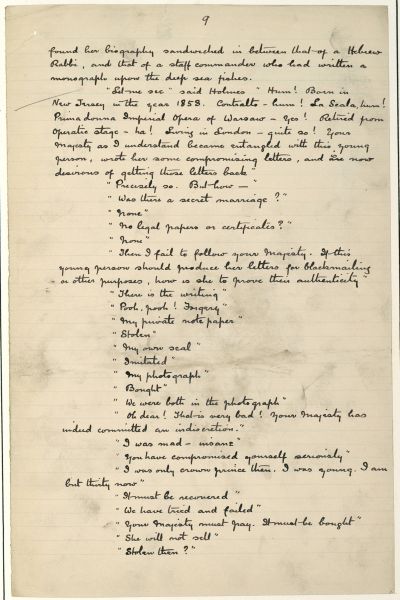 9
found her biography sandwiched in between that of a Hebrew
Rabbi, and that of a staff commander who had written a
monograph upon the deep sea fishes.
"Let me see" said Holmes "Hum! Born in
New Jersey in the year 1858. Contralto - hum! La Scala, hum!
Prima donna Imperial Opera of Warsaw - Yes! Retired from
Operatic stage - ha! Living in London - quite so! Your
Majesty as I understand became entangled with this young
person, wrote her some compromising letters, and are now
desirous of getting those letters back"
"Precisely so. But how —
"Was there a secret marriage?"
"None"
"No legal papers or certificates?"
"None"
"Then I fail to follow your Majesty. If this
young person should produce her letters for blackmailing
or other purposes, how is she to prove their authenticity"
"There is the writing"
"Pooh, pooh! Forgery"
"My private note paper"
"Stolen"
"My own seal"
"Imitated"
"My photograph"
"Bought"
"We were both in the photograph"
"Oh dear! That is very bad! Your Majesty has
indeed committed an indiscretion."
"I was mad - insane"
"You have compromised yourself seriously"
"I was only crown prince then. I was young. I am
but thirty now"
"It must be recovered"
"We have tried and failed"
"Your Majesty must pay. It must be bought"
"She will not sell"
"Stolen then?"